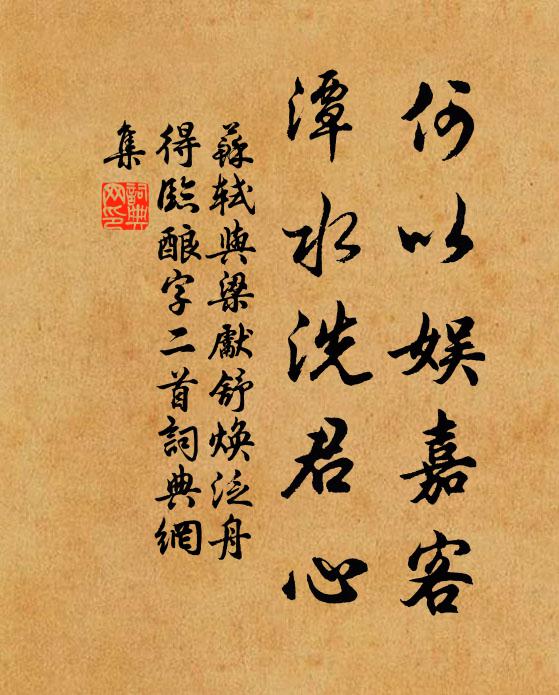 何以娛嘉客
潭水洗君心
蘇軾與梁獻舒煥泛舟
得臨釀字二首詞典網
集
詞典網印